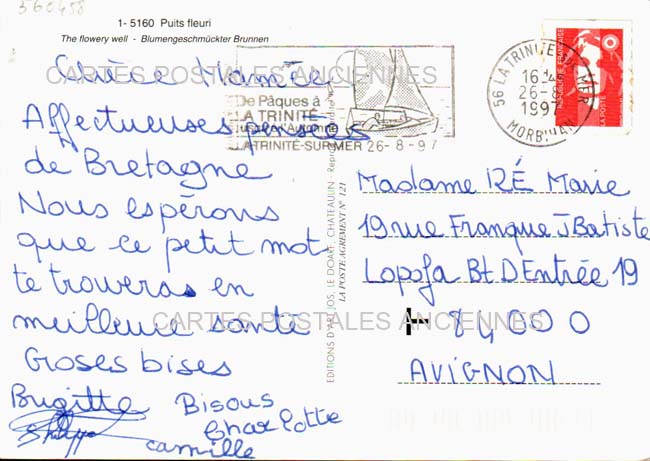 560458
1- 5160 Puits fleuri
The flowery well - Blumengeschmückter Brunnen
CARTES POSTALES ANCIENNES
Chère Mamée
Affectueuses pensées
de Bretagne
Nous espérons
que ce petit mot
te trouveras en
meilleure santé
Groses bises
Brigitte Bisous
Philippe Charlotte
camille
De Pâques à
LA TRINITÉ
jusqu'à l'Automne
LA TRINITÉ-SUR-MER 26-8-97
56 LA TRINITE SUR MER
16 H
26-8
1997
MORBIHAN
REPUBLIQUE FRANÇAISE
LA POSTE
EDITIONS D'ART JOS, LE DOARE, CHATEAULIN - Reproduction interdite
LA POSTE AGREMENT N° 121
Madame RÉ Marie
19 rue Franque J Batiste
Lopofa Bt D Entrée 19
84000
AVIGNON
CARTES POSTALES ANCIENNES